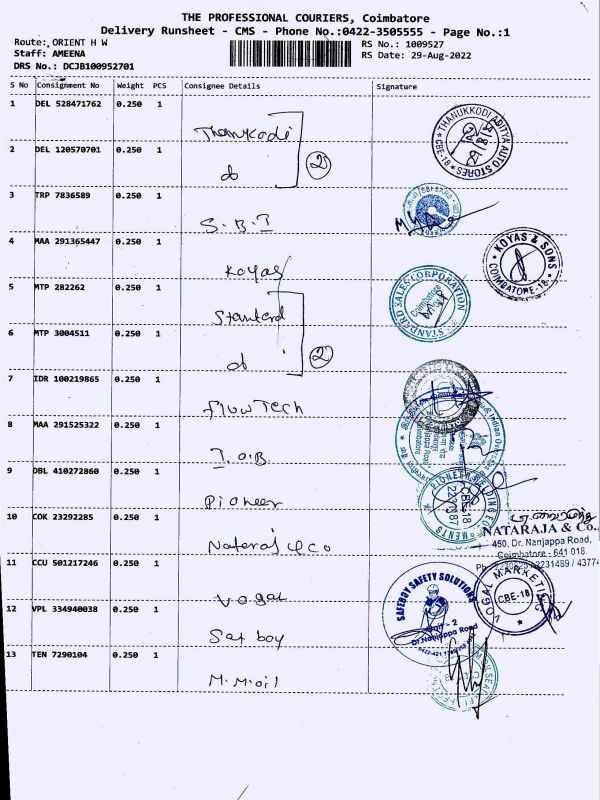 THE PROFESSIONAL COURIERS, Coimbatore
Delivery Runsheet - CMS - Phone No.:0422-3505555 - Page No.:1
Route: ORIENT H W
RS No.: 1009527
Staff: AMEENA
RS Date: 29-Aug-2022
DRS No.: DCJB100952701
S No Consignment No Weight PCS Consignee Details Signature
1 DEL 528471762 0.250 1
Thankodi
THANUKKODI ADITYA AUTO STORES CBE-18
2 DEL 120570701 0.250 1
do 2
3 TRP 7836589 0.250 1
S.B.I
4 MAA 291365447 0.250 1
Koyas
KOYAS & SONS COIMBATORE-18
5 MTP 282262 0.250 1
Standard
STANDARD SALES CORPORATION Coimbatore
6 MTP 3004511 0.250 1
do 2
7 IDR 100219865 0.250 1
Flow Tech
8 MAA 291525322 0.250 1
I.O.B
Indian Over
9 DBL 410272860 0.250 1
Pioneer
PIONEER CBE-18
10 COK 23292285 0.250 1
Nataraj & co
NATARAJA & Co.,
450, Dr. Nanjappa Road,
Coimbatore - 641 018.
2231489 / 43774
11 CCU 501217246 0.250 1
Vogal
VOGAL MARKETING CBE-18
12 VPL 334940038 0.250 1
Saf boy
SAFEBOY SAFETY SOLUTIONS
Dr.Nanjappa Road
13 TEN 7290104 0.250 1
M.M.oil